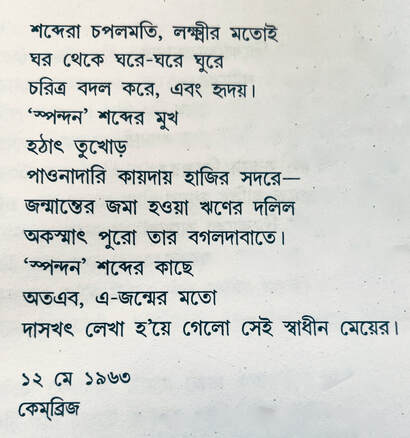 শব্দেরা চপলমতি, লক্ষ্মীর মতোই
ঘর থেকে ঘরে-ঘরে ঘুরে
চরিত্র বদল করে, এবং হৃদয়।
‘স্পন্দন’ শব্দের মুখ
হঠাৎ তুখোড়
পাওনাদারি কায়দায় হাজির সদরে—
জন্মান্তের জমা হওয়া ঋণের দলিল
অকস্মাৎ পুরো তার বগলদাবাতে।
‘স্পন্দন’ শব্দের কাছে
অতএব, এ-জন্মের মতো
দাসখৎ লেখা হ'য়ে গেলো সেই স্বাধীন মেয়ের।
১২ মে ১৯৬৩
কেম্‌ব্রিজ